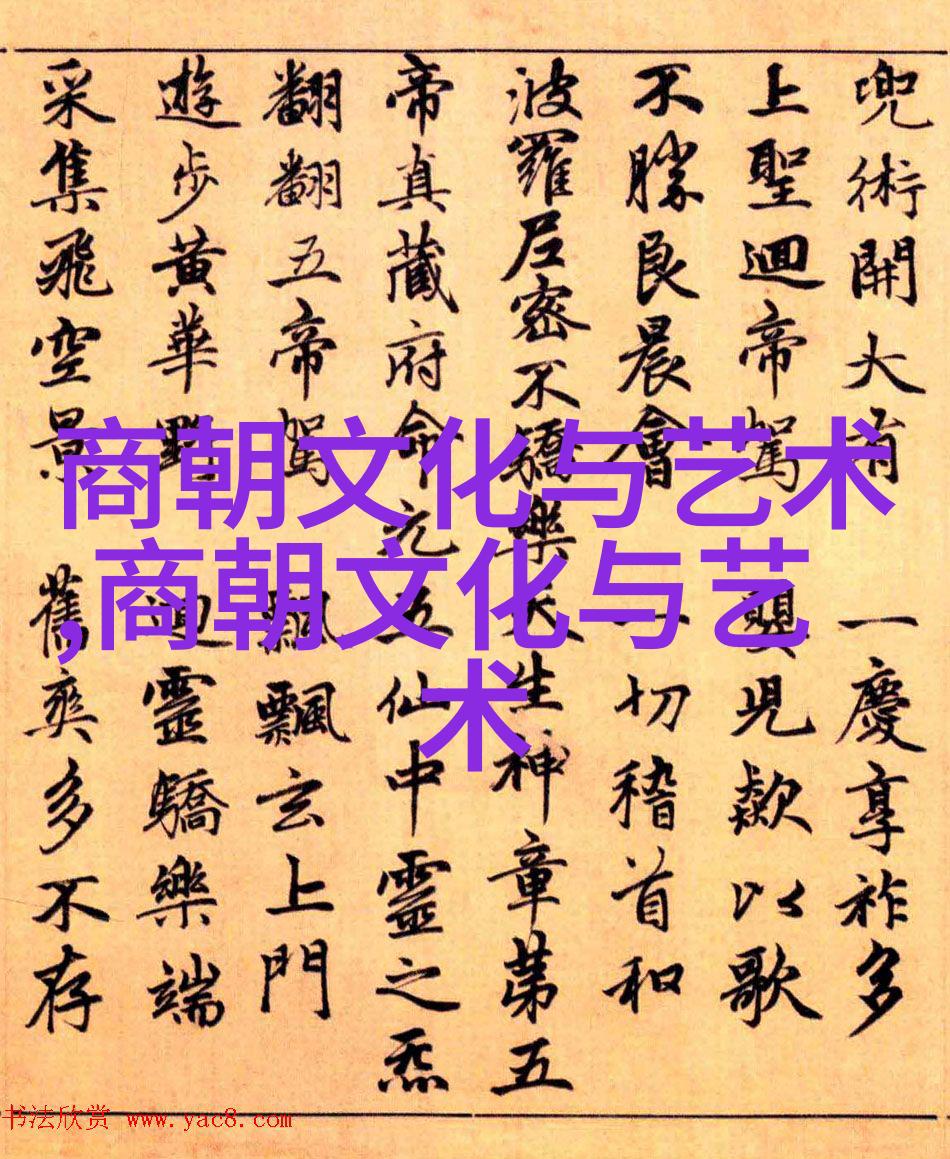 商朝文化与艺术
,商朝文化与艺
术
兜術開大有 一慶享祚多
上聖迴帝駕 見歎以歌
不勝良晨會 一切稽首和
波羅尼密不驕樂天生神章第五
帝真藏府命元五仙中靈之炁
翻翻五帝駕 飄飄玄上門
遊步黃華野 迴靈驕樂端
采集飛空景 舊爽多不存
书法欣赏 www.yac8.com